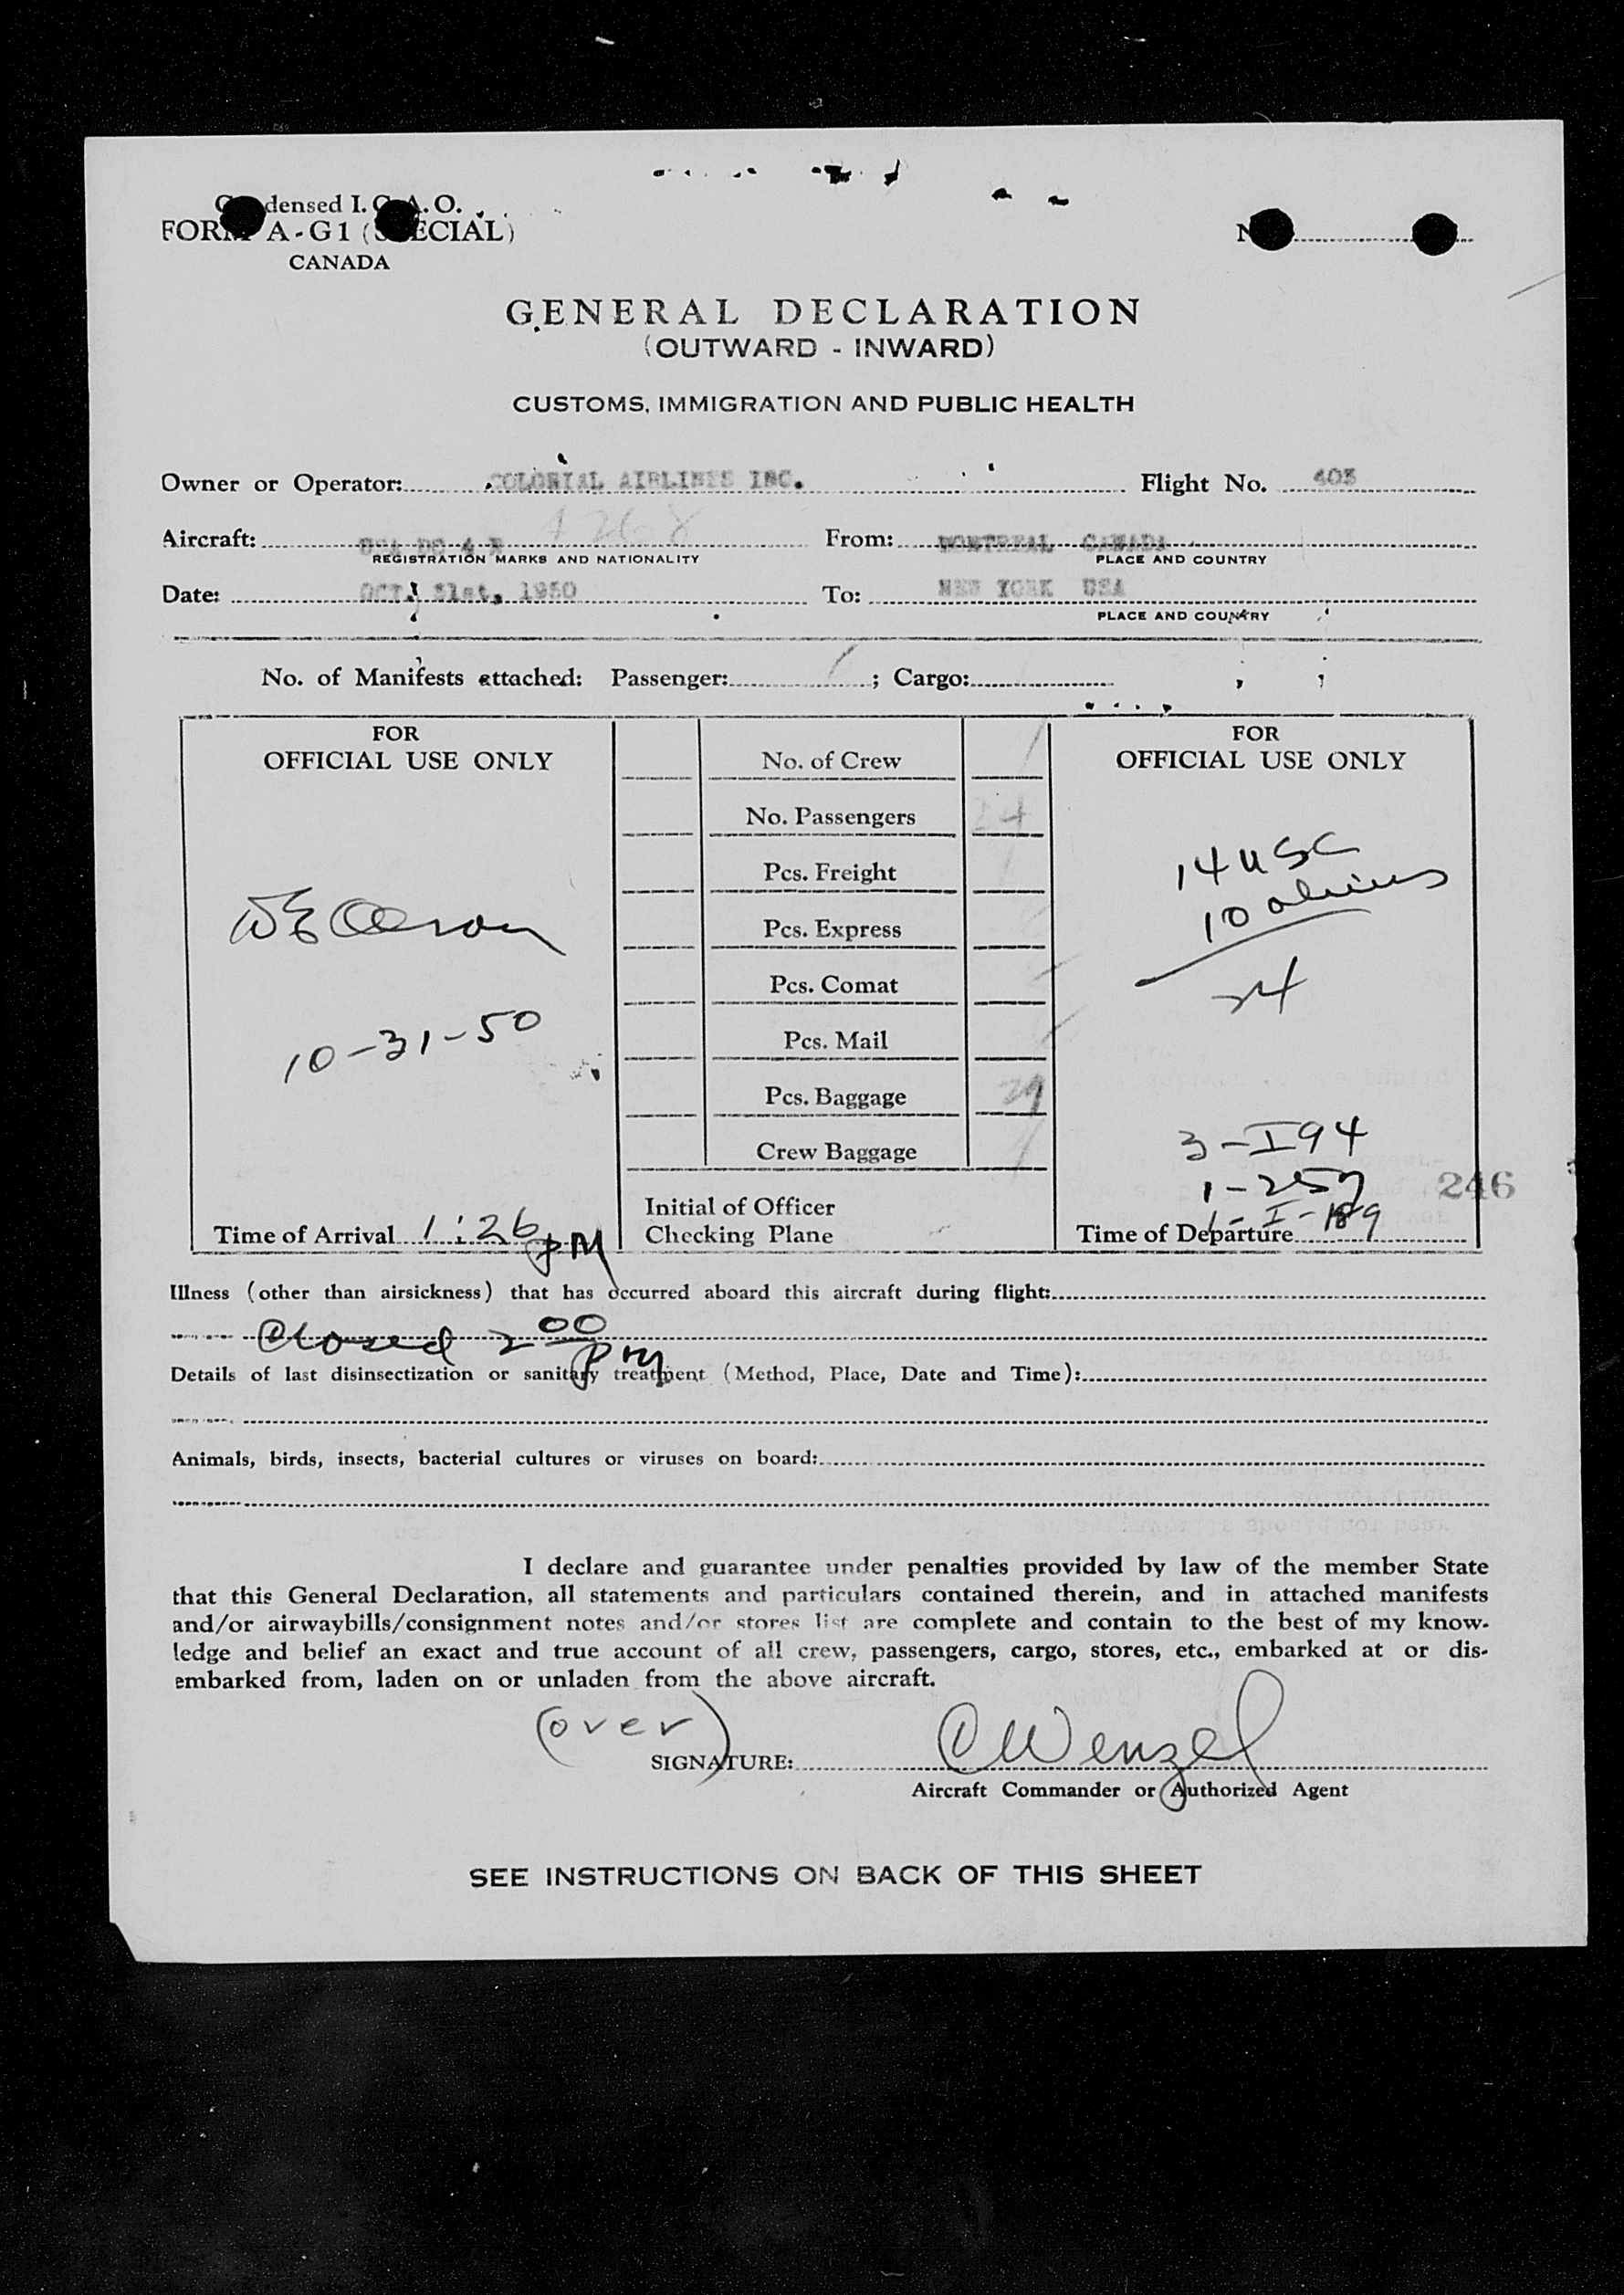 Condensed I.C.A.O.
FORM A-G1 (SPECIAL)
CANADA
GENERAL DECLARATION
(OUTWARD - INWARD)
CUSTOMS, IMMIGRATION AND PUBLIC HEALTH
Owner or Operator: COLONIAL AIRLINES INC. Flight No. 403
Aircraft: USA DC 4 From: MONTREAL CANADA
REGISTRATION MARKS AND NATIONALITY PLACE AND COUNTRY
Date: OCT. 31st, 1950 To: NEW YORK USA
PLACE AND COUNTRY
No. of Manifests attached: Passenger: 1 ; Cargo:
FOR
OFFICIAL USE ONLY
10-31-50
Time of Arrival 1:26 PM
No. of Crew
No. Passengers 24
Pcs. Freight
Pcs. Express
Pcs. Comat
Pcs. Mail
Pcs. Baggage
Crew Baggage
Initial of Officer
Checking Plane
FOR
OFFICIAL USE ONLY
14 USC
10 aliens
24
3-I94
1-257
1-I-189
246
Time of Departure
Illness (other than airsickness) that has occurred aboard this aircraft during flight:
Closed 2 00 PM
Details of last disinsectization or sanitary treatment (Method, Place, Date and Time):
Animals, birds, insects, bacterial cultures or viruses on board:
I declare and guarantee under penalties provided by law of the member State
that this General Declaration, all statements and particulars contained therein, and in attached manifests
and/or airwaybills/consignment notes and/or stores list are complete and contain to the best of my know-
ledge and belief an exact and true account of all crew, passengers, cargo, stores, etc., embarked at or dis-
embarked from, laden on or unladen from the above aircraft.
(over)
SIGNATURE: C Wenzel
Aircraft Commander or Authorized Agent
SEE INSTRUCTIONS ON BACK OF THIS SHEET